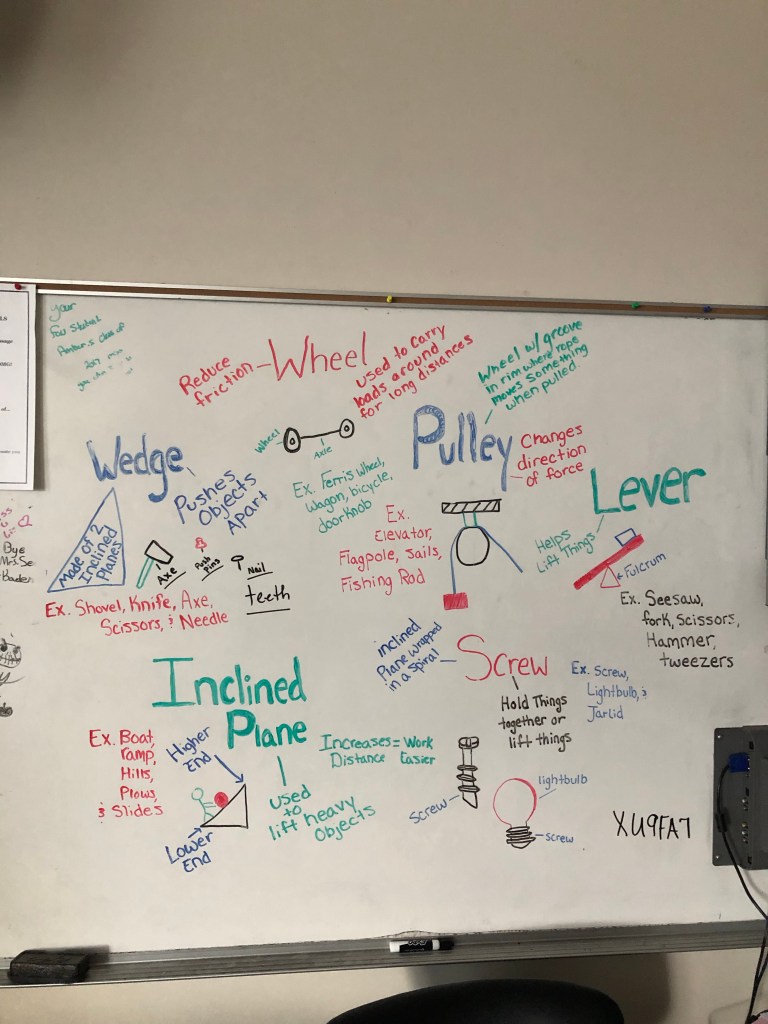 Your
class of
2017
Reduce
friction
Wheel
used to carry
loads around
for long distances
Wheel w/ groove
in rim where rope
moves something
when pulled
Wheel
Axle
Ex. Ferris Wheel,
Wagon, bicycle,
doorknob
Pulley
Changes
direction
of force
Ex.
Elevator,
Flagpole, Sails,
Fishing Rod
Wedge
Pushes
Objects
Apart
Made of 2
Inclined
Planes
Axe
Push
Pins
Nail
teeth
Ex. Shovel, Knife, Axe,
Scissors, & Needle
Lever
Helps
Lift Things
Fulcrum
Ex. Seesaw,
fork, Scissors,
Hammer,
tweezers
Bye
Inclined
Plane
Ex. Boat
ramp,
Hills,
Plows,
& Slides
Higher
End
Lower
End
used
to
lift heavy
Objects
Increases = Work
Distance Easier
Screw
inclined
Plane wrapped
in a Spiral
Hold Things
together or
lift things
Ex. Screw,
Lightbulb, &
Jarlid
Screw
lightbulb
screw
XU9FA7